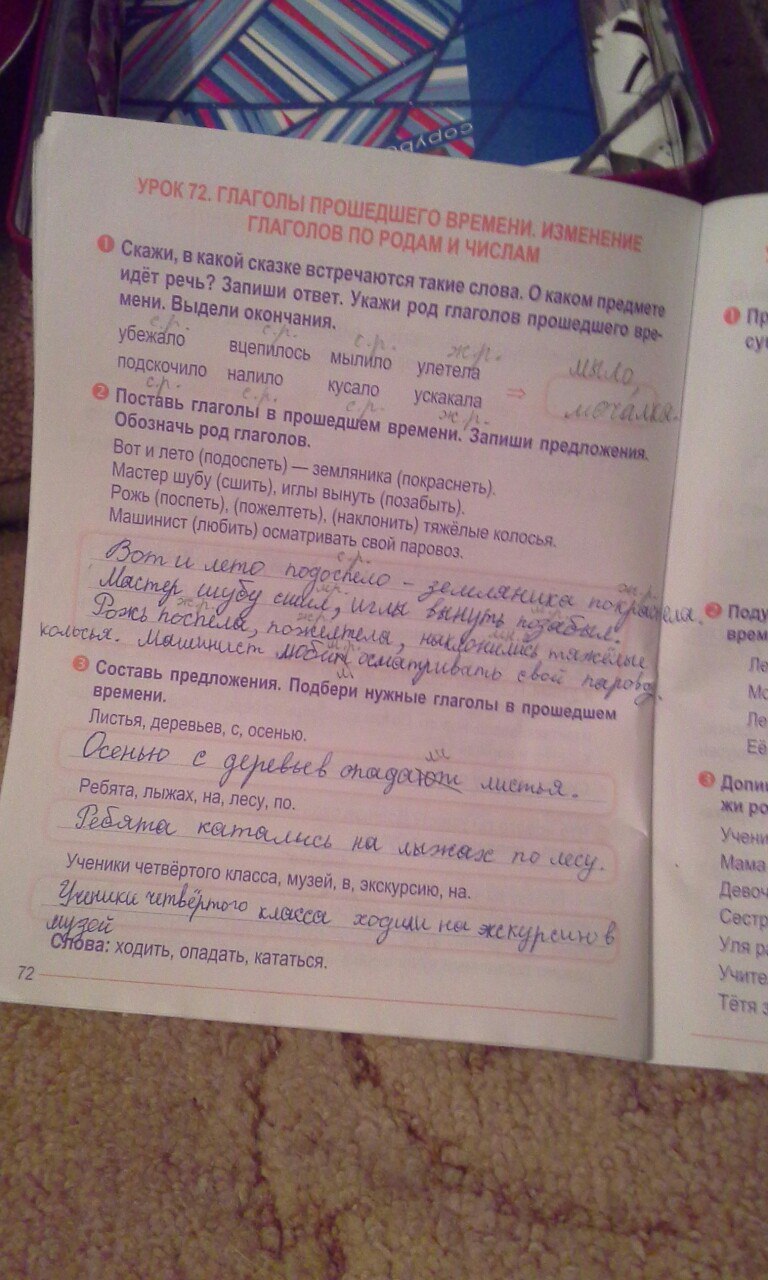 copybo
УРОК 72. ГЛАГОЛЫ ПРОШЕДШЕГО ВРЕМЕНИ. ИЗМЕНЕНИЕ
ГЛАГОЛОВ ПО РОДАМ И ЧИСЛАМ
1 Скажи, в какой сказке встречаются такие слова. О каком предмете
идёт речь? Запиши ответ. Укажи род глаголов прошедшего вре-
мени. Выдели окончания.
с.р. с.р. с.р. ж.р.
убежало вцепилось мылило улетела
мыло,
подскочило налило кусало ускакала ⇒ мочалка.
с.р. с.р. с.р. ж.р.
2 Поставь глаголы в прошедшем времени. Запиши предложения.
Обозначь род глаголов.
Вот и лето (подоспеть) — земляника (покраснеть).
Мастер шубу (сшить), иглы вынуть (позабыть).
Рожь (поспеть), (пожелтеть), (наклонить) тяжёлые колосья.
Машинист (любить) осматривать свой паровоз.
с.р. ж.р.
Вот и лето подоспело – земляника покраснела.
м.р. м.р.
Мастер шубу сшил, иглы вынуть позабыл.
ж.р. ж.р.
Рожь поспела, пожелтела, наклонились тяжёлые
колосья. Машинист любил осматривать свой паровоз.
3 Составь предложения. Подбери нужные глаголы в прошедшем
времени.
Листья, деревьев, с, осенью.
Осенью с деревьев опадают листья.
ли
Ребята, лыжах, на, лесу, по.
Ребята катались на лыжах по лесу.
Ученики четвёртого класса, музей, в, экскурсию, на.
Ученики четвёртого класса ходили на экскурсию в
музей
Слова: ходить, опадать, кататься.
72
1 Пр
су
2 Поду
врем
Ле
Мо
Ле
Её
3 Допи
жи ро
Учени
Мама
Девоч
Сестр
Уля ра
Учите
Тётя з